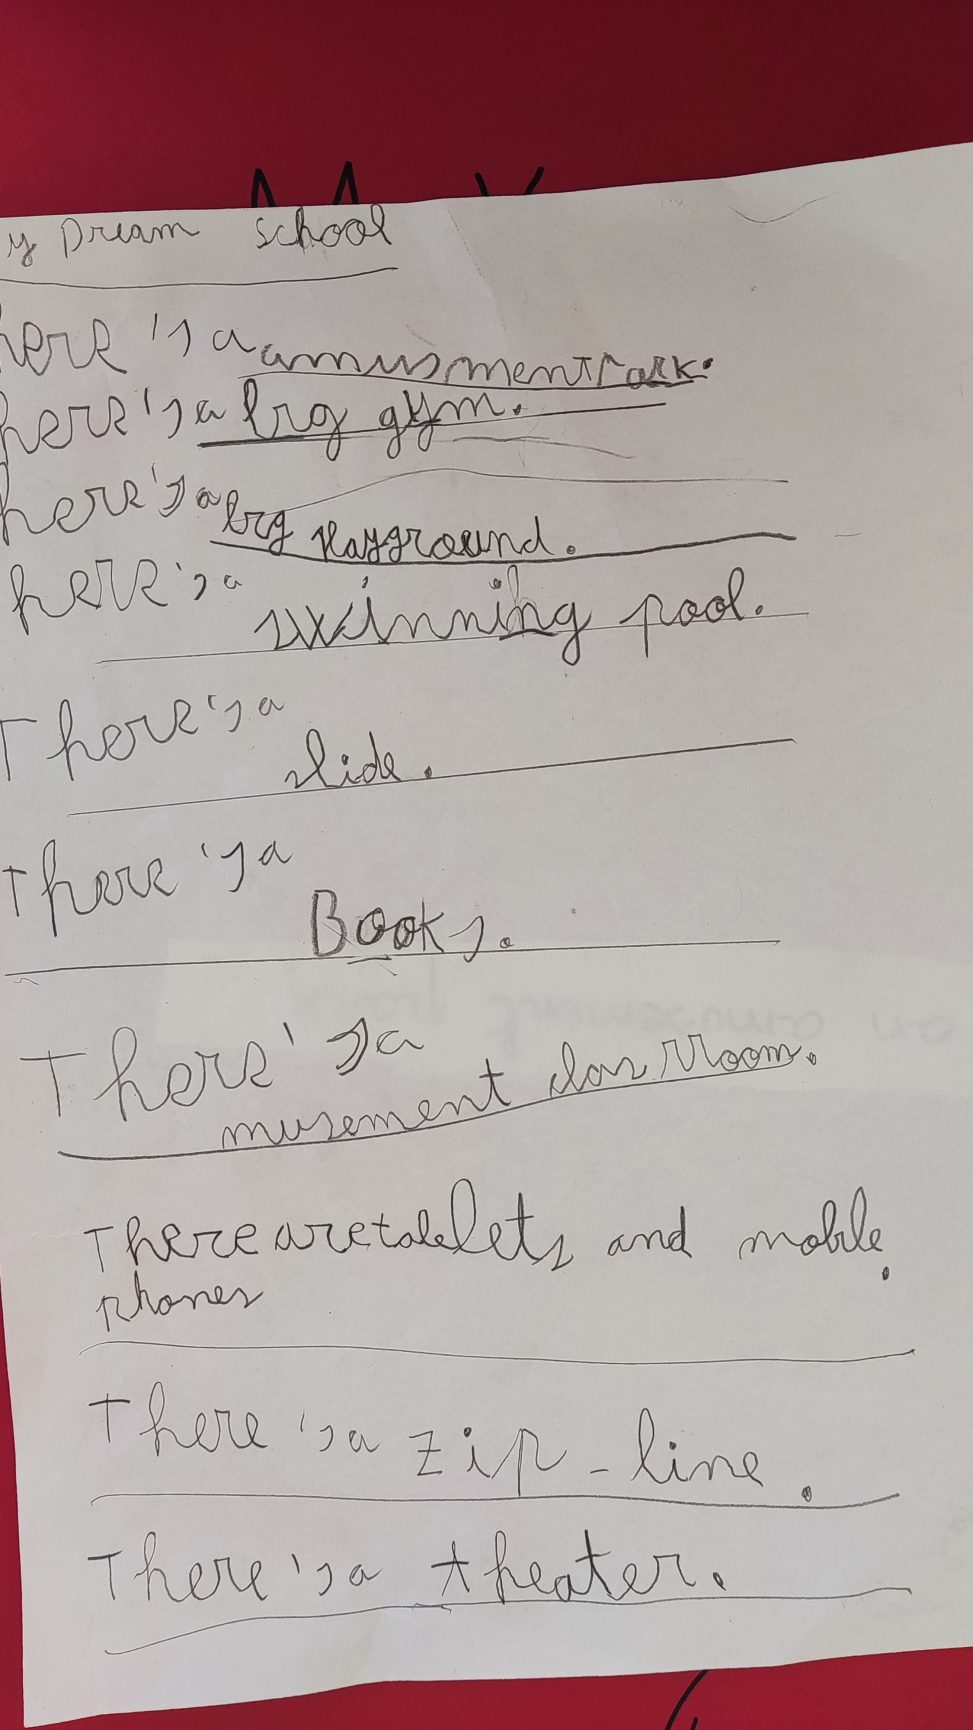 y Dream School
here's a amusment Park.
here's a brg gym.
here's a brg playground.
here's a swinning pool.
There's a slide.
There's a Books.
There's a musement class rroom.
There are tablets and mobile
phones.
There's a zip-line.
There's a theater.